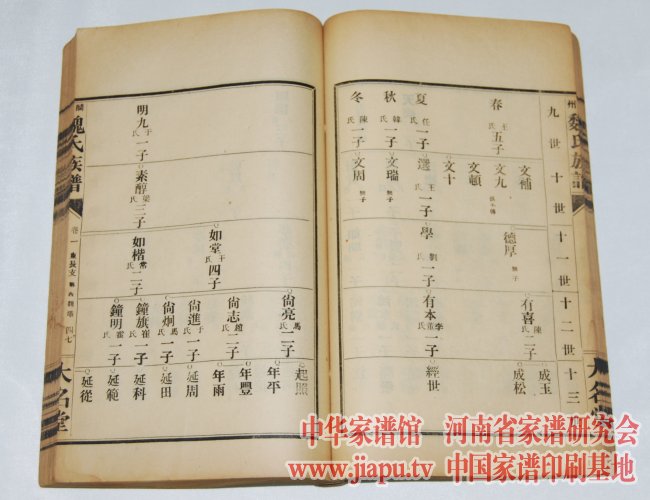 州 魏氏族譜
大名堂
九世 十世 十一世 十二世 十三
春 王氏 五子
夏 任氏 一子
秋 韓氏 一子
冬 陳氏 一子
文補
文九
文頓
文十
選 王氏 一子
文瑞 無子
文周 無子
德厚 無子
學 劉氏 一子
有喜 陳氏 二子
有本 李氏 董氏 一子
成玉
成松
經世
明九 于氏 一子
素醇 梁氏 三子
如堂 于氏 四子
如楷 常氏 二子
尙亮 馬氏 二子
尙志 趙氏 二子
尙進 于氏 一子
尙炯 馬氏 一子
鐘旗 崔氏 一子
鐘明 霍氏 一子
起照
年平
年豐
年雨
延周
延田
延科
延範
延從
魏氏族譜 卷一 東長支 四七
大名堂
中华家谱馆 河南省家谱研究会
www.jiapu.tv 中国家谱印刷基地